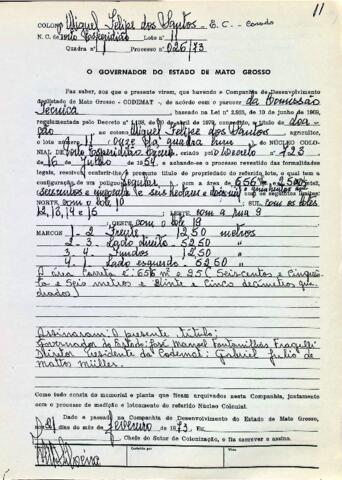 11
COLONO Miguel Felipe dos Santos - E.C. - Casado
N. C. de Porto Esperidião Lote n.º 11
Quadra n.º 1 Processo n.º 026/73
O GOVERNADOR DO ESTADO DE MATO GROSSO
Faz saber, aos que o presente virem, que havendo a Companhia de Desenvolvimento
do Estado de Mato Grosso - CODEMAT -, de acôrdo com o parecer da Comissão
Técnica
regulamentada pelo Decreto n.º 1.138, de 20 de abril de 1970, concedido a título de doa-
ção ao Miguel Felipe dos Santos, agricultor,
o lote número 11 onze da quadra um do NÚCLEO COLO-
NIAL de Porto Esperidião criado pelo Decreto n.º 723
de 16 de Julho de 1954, e achando-se o processo revestido das formalidades
legais, resolveu conferir-lhe o presente título de propriedade do referido lote, o qual tem
a configuração de um polígono regular, com a área de 656 m²
NORTE, com o lote 10; SUL, com os lotes
12, 13, 14 e 15; LESTE, com a rua 9
; OESTE, com o lote 18
MARCOS 1 - 2 - Frente - 12,50 metros
2 - 3 - Lado direito - 52,50 "
3 - 4 - Fundos 12,50 "
4 - 1 - Lado esquerdo - 52,50 "
A área correta é: 656 m² e 25 (Seiscentos e Cinquen-
ta e Seis metros e Vinte e Cinco decímetros qua-
drados)
Assinaram: O presente título:
Governador do Estado: José Manoel Fontanillas Fragelli
Diretor Presidente da Codemat: Gabriel Julio de
Mattos Müller.
Como tudo consta do memorial e planta que ficam arquivados nesta Companhia, juntamente
com o processo de medição e loteamento do referido Núcleo Colonial.
Dado e passado na Companhia de Desenvolvimento do Estado de Mato Grosso,
dias do mês de fevereiro de 1973. Eu,
Chefe do Setor de Colonização, o fiz escrever e assino.
Conferido por
Visto